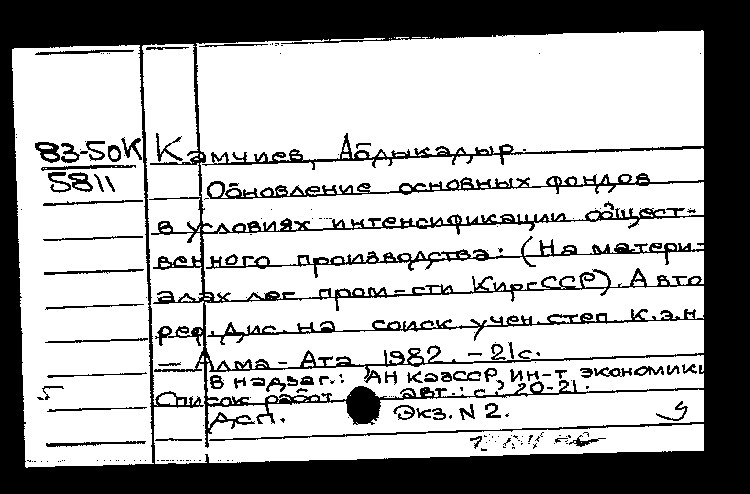 83-50К Камчиев, Абдыкадыр.
5811 Обновление основных фондов
в условиях интенсификации общест-
венного производства: (На матери-
алах лег. пром-сти КиргССР). Авто
реф. дис. на соиск. учен. степ. к.э.н.
– Алма-Ата, 1982. – 21с.
В надзаг.: АН КазССР, Ин-т экономики
Список работ авт.: с. 20-21.
Экз. N 2.